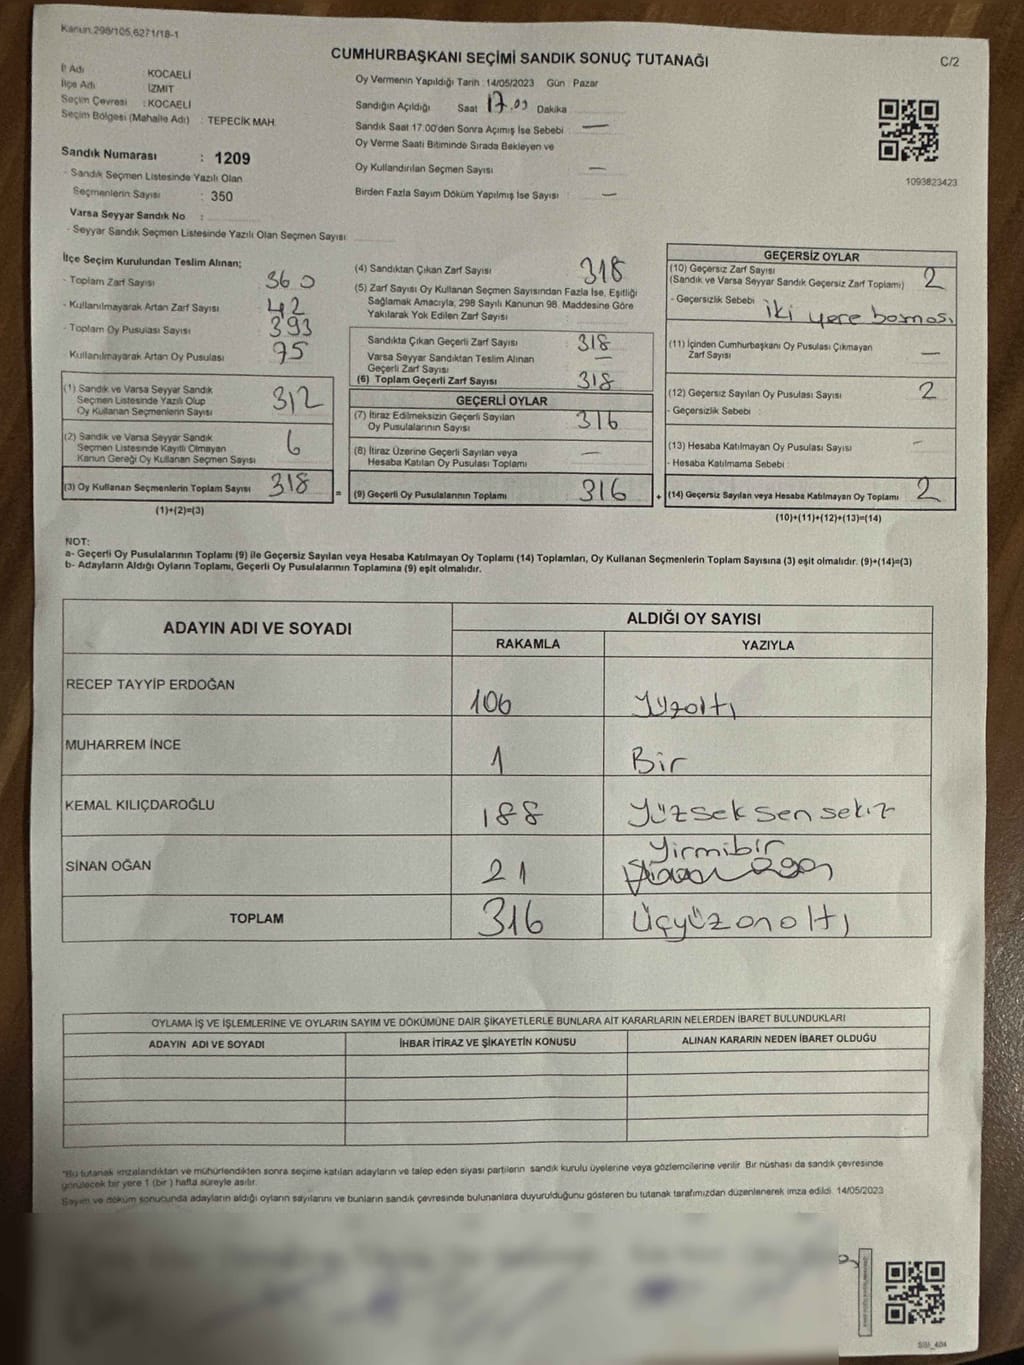 Kanun.298/105,6271/18-1
CUMHURBAŞKANI SEÇİMİ SANDIK SONUÇ TUTANAĞI
C/2
İl Adı : KOCAELİ
İlçe Adı : İZMİT
Seçim Çevresi : KOCAELİ
Seçim Bölgesi (Mahalle Adı) : TEPECİK MAH.
Sandık Numarası : 1209
- Sandık Seçmen Listesinde Yazılı Olan
Seçmenlerin Sayısı : 350
Varsa Seyyar Sandık No :
- Seyyar Sandık Seçmen Listesinde Yazılı Olan Seçmen Sayısı
Oy Vermenin Yapıldığı Tarih : 14/05/2023 Gün : Pazar
Sandığın Açıldığı Saat 17.09 Dakika
Sandık Saat 17:00'den Sonra Açımış İse Sebebi : —
Oy Verme Saati Bitiminde Sırada Bekleyen ve
Oy Kullandırılan Seçmen Sayısı : —
Birden Fazla Sayım Döküm Yapılmış İse Sayısı : —
1093823423
İlçe Seçim Kurulundan Teslim Alınan;
- Toplam Zarf Sayısı : 360
- Kullanılmayarak Artan Zarf Sayısı : 42
- Toplam Oy Pusulası Sayısı : 393
- Kullanılmayarak Artan Oy Pusulası : 75
(1) Sandık ve Varsa Seyyar Sandık
Seçmen Listesinde Yazılı Olup
Oy Kullanan Seçmenlerin Sayısı 312
(2) Sandık ve Varsa Seyyar Sandık
Seçmen Listesinde Kayıtlı Olmayan
Kanun Gereği Oy Kullanan Seçmen Sayısı 6
(3) Oy Kullanan Seçmenlerin Toplam Sayısı 318
(1)+(2)=(3)
=
(4) Sandıktan Çıkan Zarf Sayısı 318
(5) Zarf Sayısı Oy Kullanan Seçmen Sayısından Fazla İse, Eşitliği
Sağlamak Amacıyla, 298 Sayılı Kanunun 98. Maddesine Göre
Yakılarak Yok Edilen Zarf Sayısı :
Sandıkta Çıkan Geçerli Zarf Sayısı : 318
Varsa Seyyar Sandıktan Teslim Alınan
Geçerli Zarf Sayısı : —
(6) Toplam Geçerli Zarf Sayısı 318
GEÇERLİ OYLAR
(7) İtiraz Edilmeksizin Geçerli Sayılan
Oy Pusulalarının Sayısı 316
(8) İtiraz Üzerine Geçerli Sayılan veya
Hesaba Katılan Oy Pusulası Toplamı —
(9) Geçerli Oy Pusulalarının Toplamı 316
+
GEÇERSİZ OYLAR
(10) Geçersiz Zarf Sayısı
(Sandık ve Varsa Seyyar Sandık Geçersiz Zarf Toplamı) 2
- Geçersizlik Sebebi : iki yere basması
(11) İçinden Cumhurbaşkanı Oy Pusulası Çıkmayan
Zarf Sayısı —
(12) Geçersiz Sayılan Oy Pusulası Sayısı 2
- Geçersizlik Sebebi :
(13) Hesaba Katılmayan Oy Pusulası Sayısı —
- Hesaba Katılmama Sebebi :
(14) Geçersiz Sayılan veya Hesaba Katılmayan Oy Toplamı 2
(10)+(11)+(12)+(13)=(14)
NOT:
a- Geçerli Oy Pusulalarının Toplamı (9) ile Geçersiz Sayılan veya Hesaba Katılmayan Oy Toplamı (14) Toplamları, Oy Kullanan Seçmenlerin Toplam Sayısına (3) eşit olmalıdır. (9)+(14)=(3)
b- Adayların Aldığı Oyların Toplamı, Geçerli Oy Pusulalarının Toplamına (9) eşit olmalıdır.
ADAYIN ADI VE SOYADI
ALDIĞI OY SAYISI
RAKAMLA YAZIYLA
RECEP TAYYİP ERDOĞAN 106 Yüzaltı
MUHARREM İNCE 1 Bir
KEMAL KILIÇDAROĞLU 188 Yüzseksensekiz
SİNAN OĞAN 21 Yirmibir
TOPLAM 316 Üçyüzonaltı
OYLAMA İŞ VE İŞLEMLERİNE VE OYLARIN SAYIM VE DÖKÜMÜNE DAİR ŞİKAYETLERLE BUNLARA AİT KARARLARIN NELERDEN İBARET BULUNDUKLARI
ADAYIN ADI VE SOYADI İHBAR İTİRAZ VE ŞİKAYETİN KONUSU ALINAN KARARIN NEDEN İBARET OLDUĞU
*Bu tutanak imzalandıktan ve mühürlendikten sonra seçime katılan adayların ve talep eden siyasi partilerin sandık kurulu üyelerine veya gözlemcilerine verilir. Bir nüshası da sandık çevresinde
görülecek bir yere 1 (bir ) hafta süreyle asılır.
Sayım ve döküm sonucunda adayların aldığı oyların sayılarını ve bunların sandık çevresinde bulunanlara duyurulduğunu gösteren bu tutanak tarafımızdan düzenlenerek imza edildi. 14/05/2023